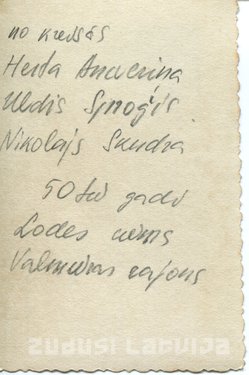 no kreisās
Herta Anverina
Uldis Sproģis
Nikolajs Skudra
50tie gadi
Lodes ciems
Valmieras rajons
zudusi Latvija